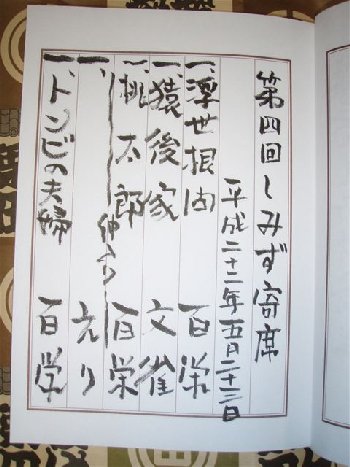 第四回しみず寄席
平成二十二年五月二十三日
一、浮世根問 百栄
一、猿後家 文雀
一、桃太郎 百栄
仲入り
一、
一、トンビの夫婦 百栄